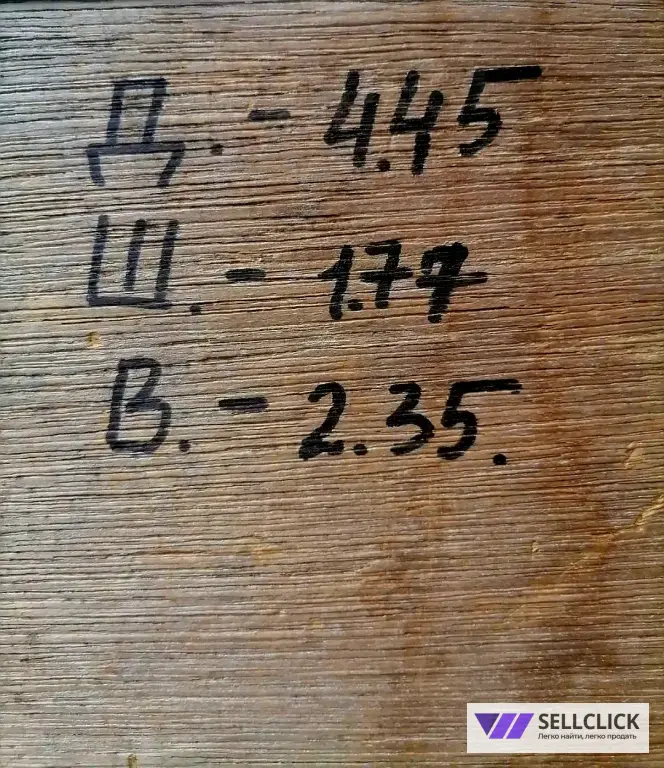 Д. - 4.45
Ш. - 1.77
В. - 2.35.
SELLCLICK
Легко найти, легко продать